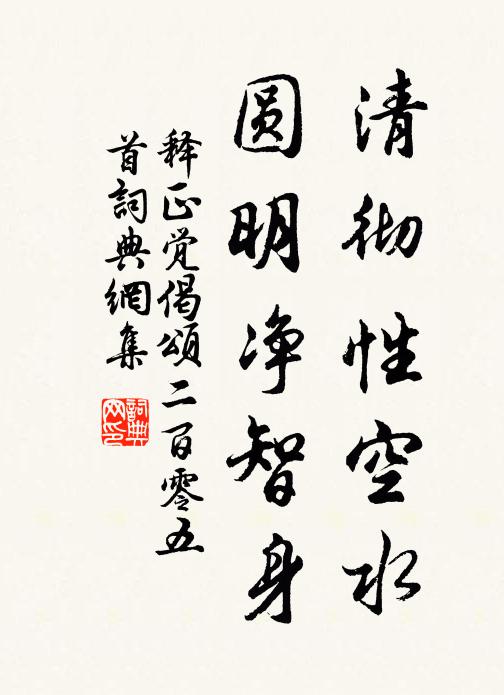 清彻性空水
圆明净智身
释正觉偈頌二百零五
首詞典網集
詞典
网印